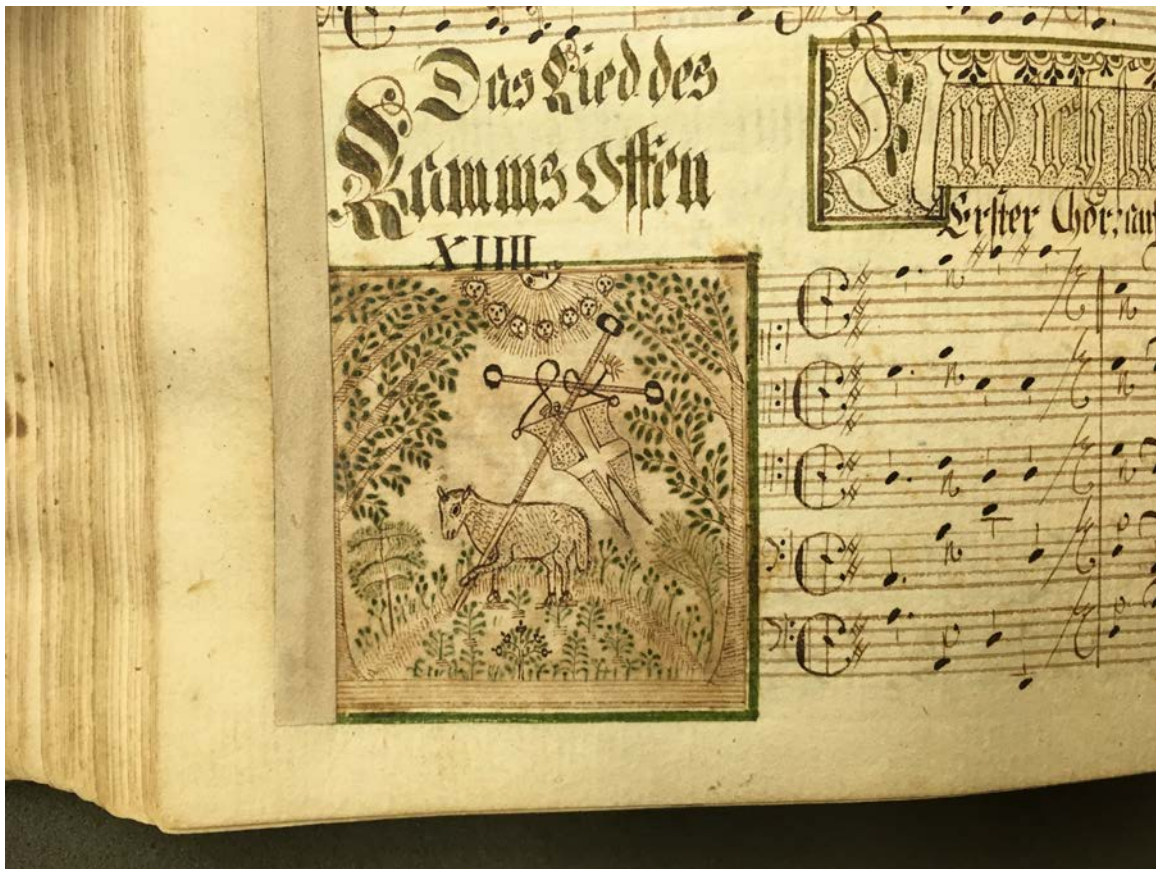 Das Lied des
Lamms Offen
XIIII.
Und ich
Erster Chor;